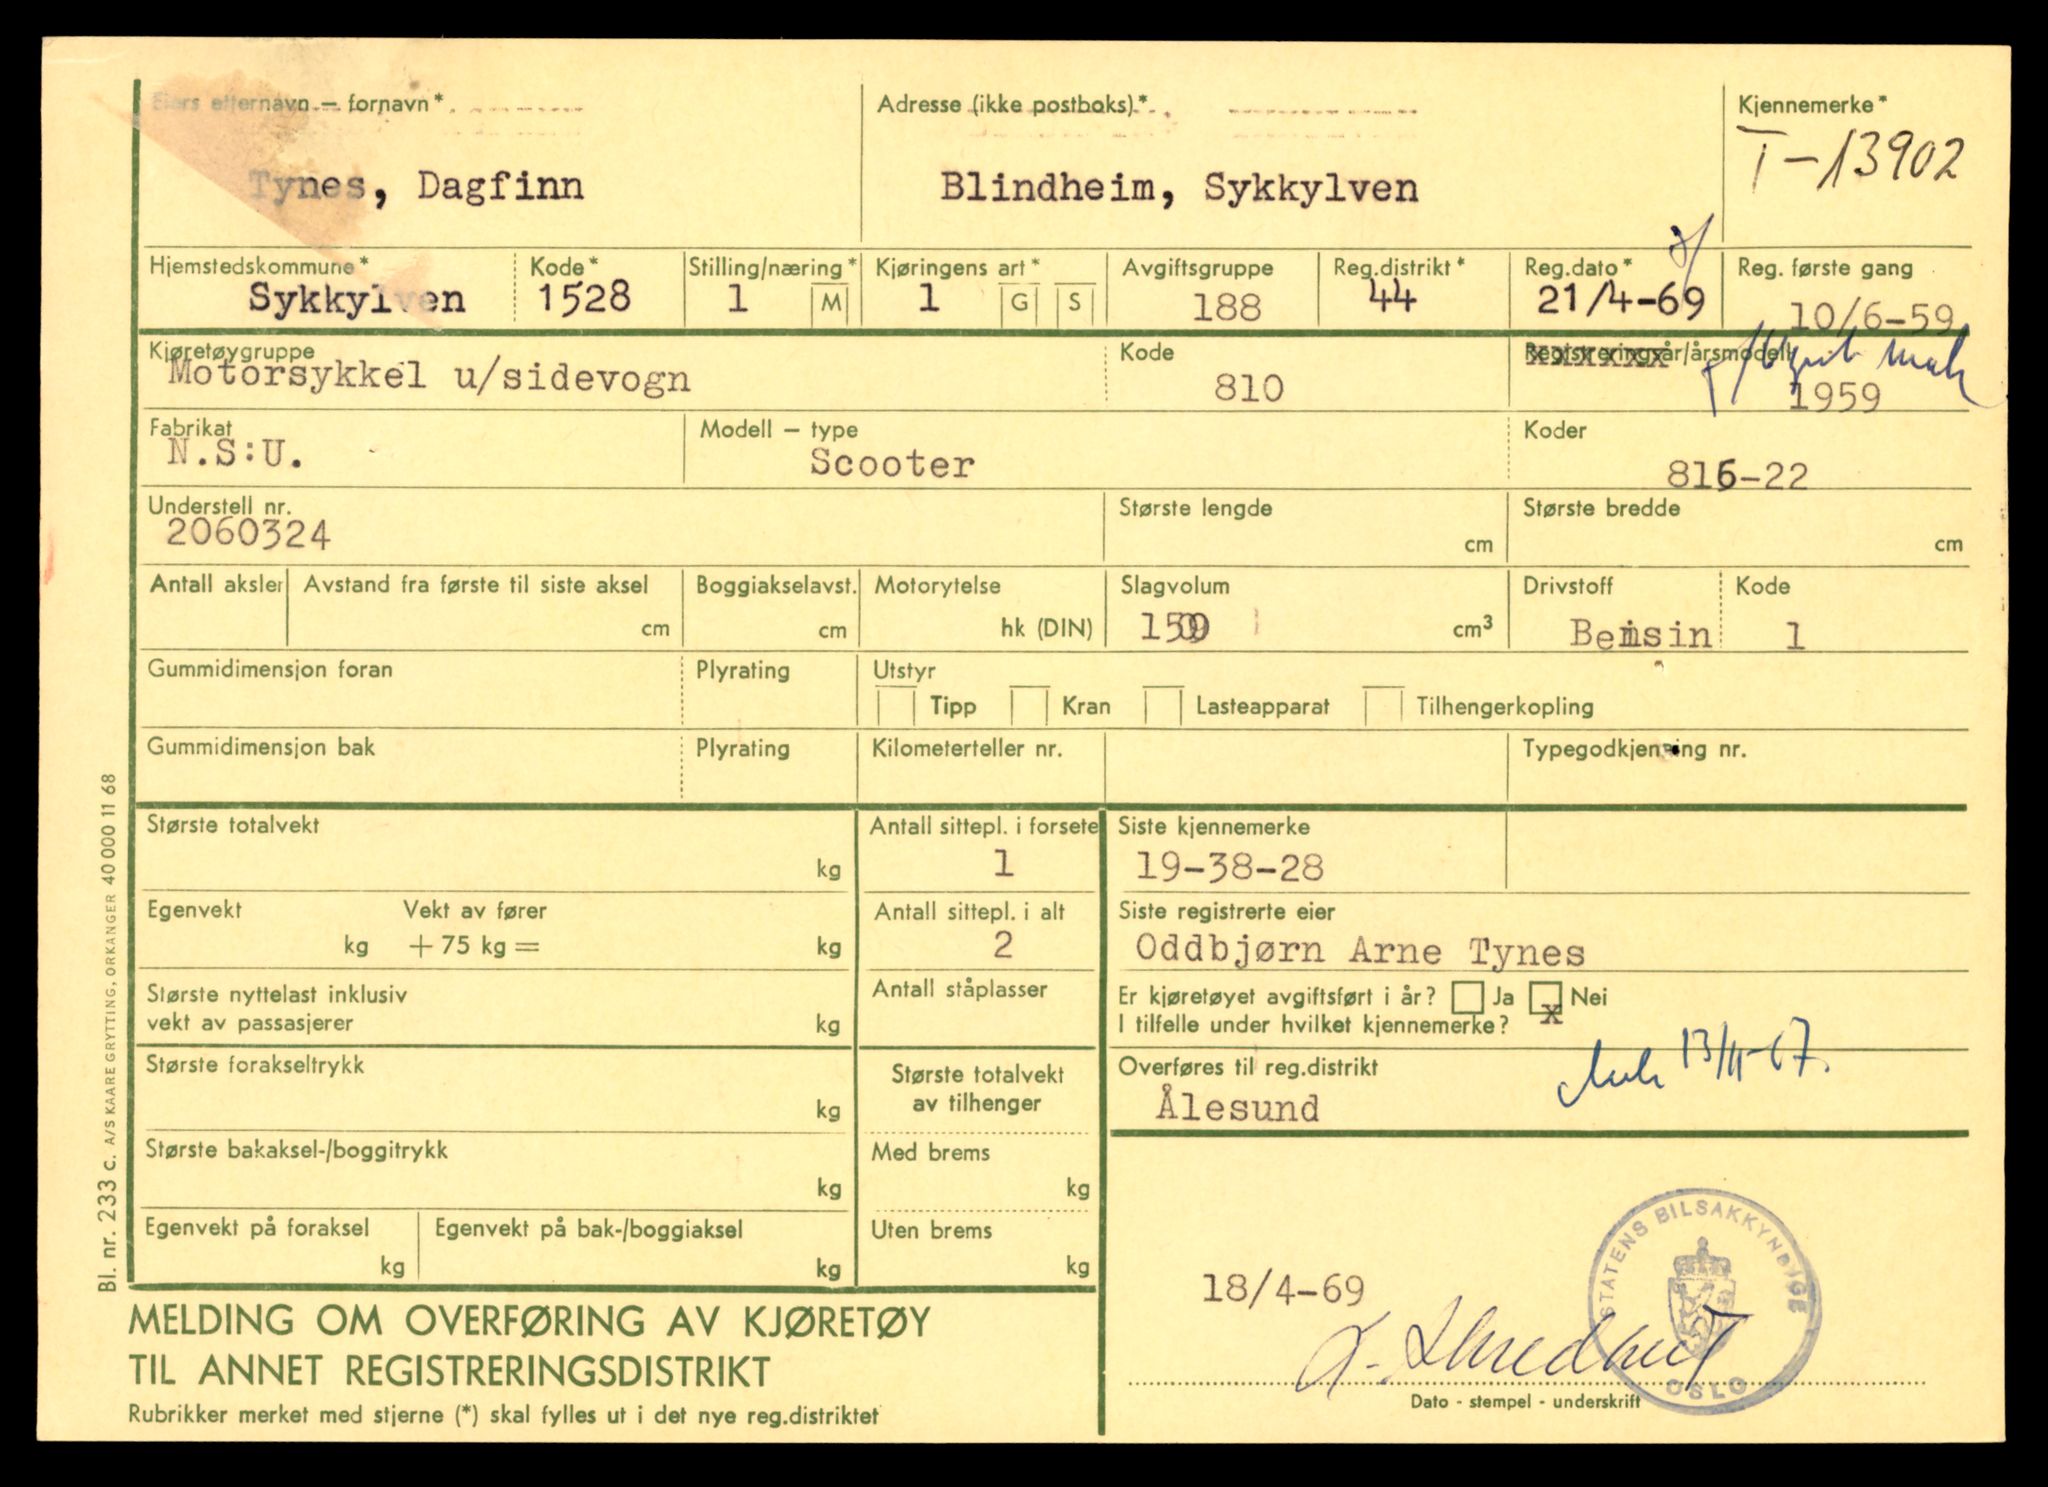 Eiers etternavn – fornavn* Adresse (ikke postboks)* Kjennemerke*
T-13902
Tynes, Dagfinn Blindheim, Sykkylven
Hjemstedskommune* Kode* Stilling/næring* Kjøringens art* Avgiftsgruppe Reg.distrikt* Reg.dato* Reg. første gang
Sykkylven 1528 1 M 1 G S 188 44 21/4-69 10/6-59
Kjøretøygruppe Kode Registreringsår/årsmodell
Motorsykkel u/sidevogn 810 1959
Fabrikat Modell – type Koder
N.S:U. Scooter 816-22
Understell nr. Største lengde Største bredde
2060324 cm cm
Antall aksler Avstand fra første til siste aksel Boggiakselavst. Motorytelse Slagvolum Drivstoff Kode
cm cm hk (DIN) cm³ Bensin 1
Gummidimensjon foran Plyrating Utstyr
Tipp Kran Lasteapparat Tilhengerkopling
Gummidimensjon bak Plyrating Kilometerteller nr. Typegodkjenning nr.
Største totalvekt Antall sittepl. i forsete Siste kjennemerke
kg 1 19-38-28
Egenvekt Vekt av fører Antall sittepl. i alt Siste registrerte eier
kg + 75 kg = kg 2 Oddbjørn Arne Tynes
Største nyttelast inklusiv Antall ståplasser Er kjøretøyet avgiftsført i år? Ja x Nei
vekt av passasjerer kg I tilfelle under hvilket kjennemerke?
Største forakseltrykk Største totalvekt Overføres til reg.distrikt 13/11-67.
kg av tilhenger Ålesund
Største bakaksel-/boggitrykk Med brems
kg kg
Egenvekt på foraksel Egenvekt på bak-/boggiaksel Uten brems
kg kg kg
STATENS BILSAKKYNDIGE
OSLO
18/4-69
MELDING OM OVERFØRING AV KJØRETØY
TIL ANNET REGISTRERINGSDISTRIKT
Dato - stempel - underskrift
Rubrikker merket med stjerne (*) skal fylles ut i det nye reg.distriktet
Bl. nr. 233 c. A/S KAARE GRYTTING, ORKANGER 40 000 11 68